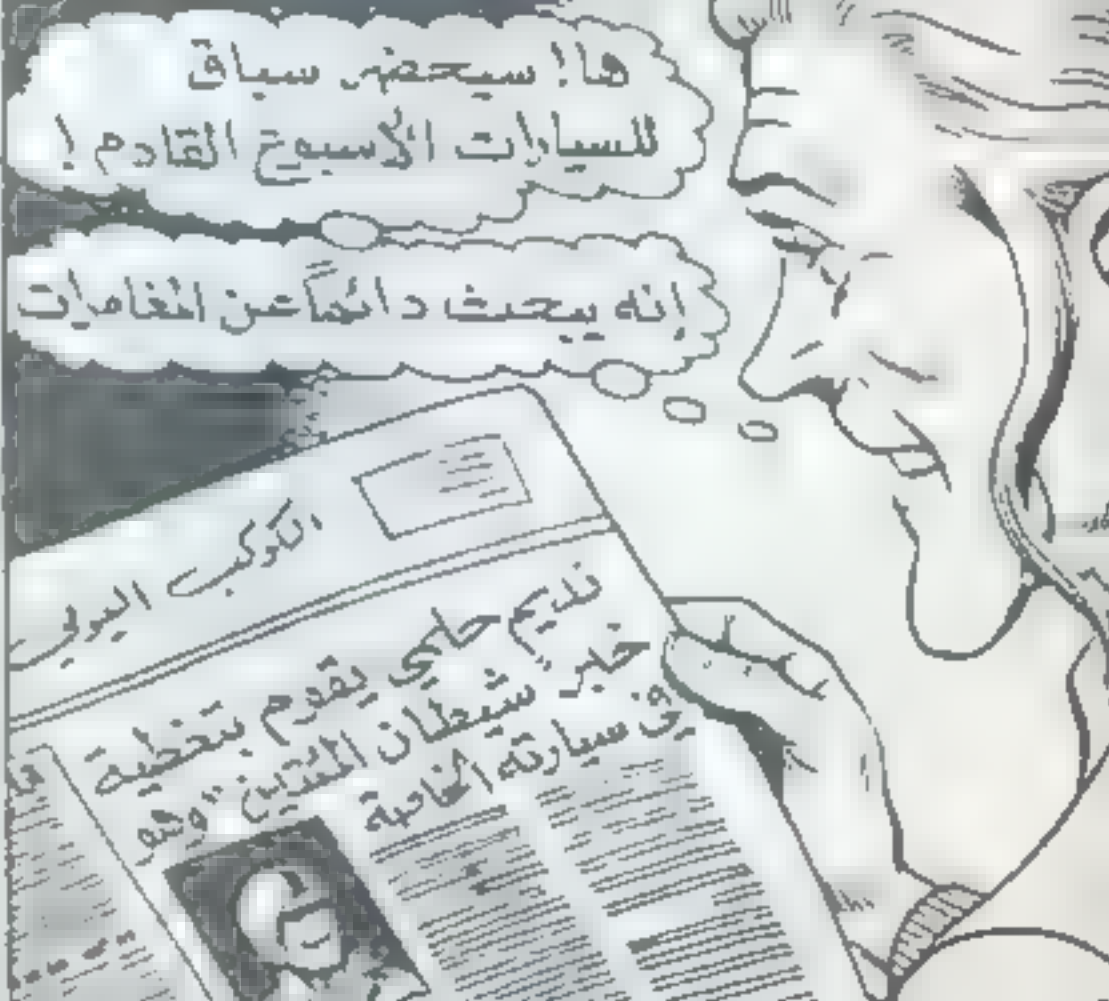 ها! سيحضر سباق
للسيارات الأسبوع القادم !
إنه يبحث دائماً عن المغامرات
الكوكب اليومي
نديم حلمي يقوم بتغطية
خبر "شيطان المئتين" وهو
في سيارته الخاصة